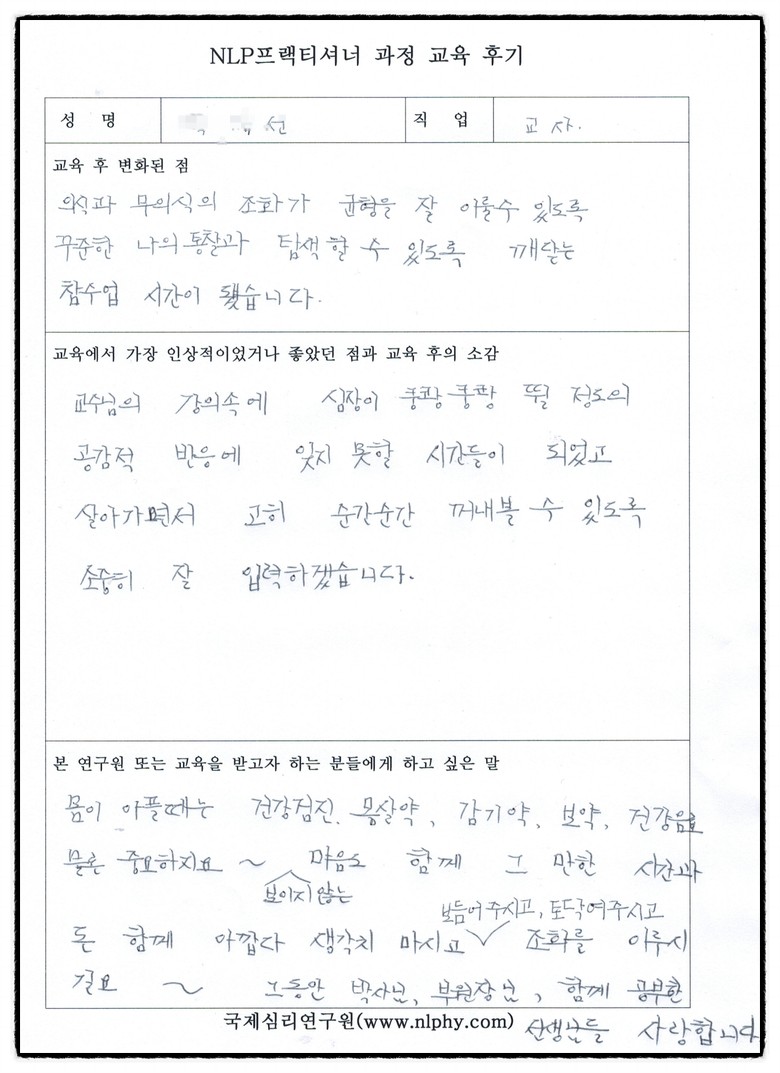 NLP프랙티셔너 과정 교육 후기
성 명 선 직 업 교사.
교육 후 변화된 점
의식과 무의식의 조화가 균형을 잘 이룰수 있도록
꾸준한 나의 통찰과 탐색 할 수 있도록 깨닫는
참수업 시간이 됐습니다.
교육에서 가장 인상적이었거나 좋았던 점과 교육 후의 소감
교수님의 강의속에 심장이 쿵쾅쿵쾅 뛸 정도의
공감적 반응에 잊지 못할 시간들이 되었고
살아가면서 고히 순간순간 꺼내볼 수 있도록
소중히 잘 입력하겠습니다.
본 연구원 또는 교육을 받고자 하는 분들에게 하고 싶은 말
몸이 아플때는 건강검진, 몸살약, 감기약, 보약, 건강음료
물론 중요하지요 ~ 마음도 함께 그 만한 시간과
보이지 않는
보듬어 주시고, 토닥여주시고
돈 함께 아깝다 생각치 마시고 조화를 이루시
길요 ~ 그동안 박사님, 부원장님, 함께 공부한
국제심리연구원(www.nlphy.com) 선생님들 사랑합니다